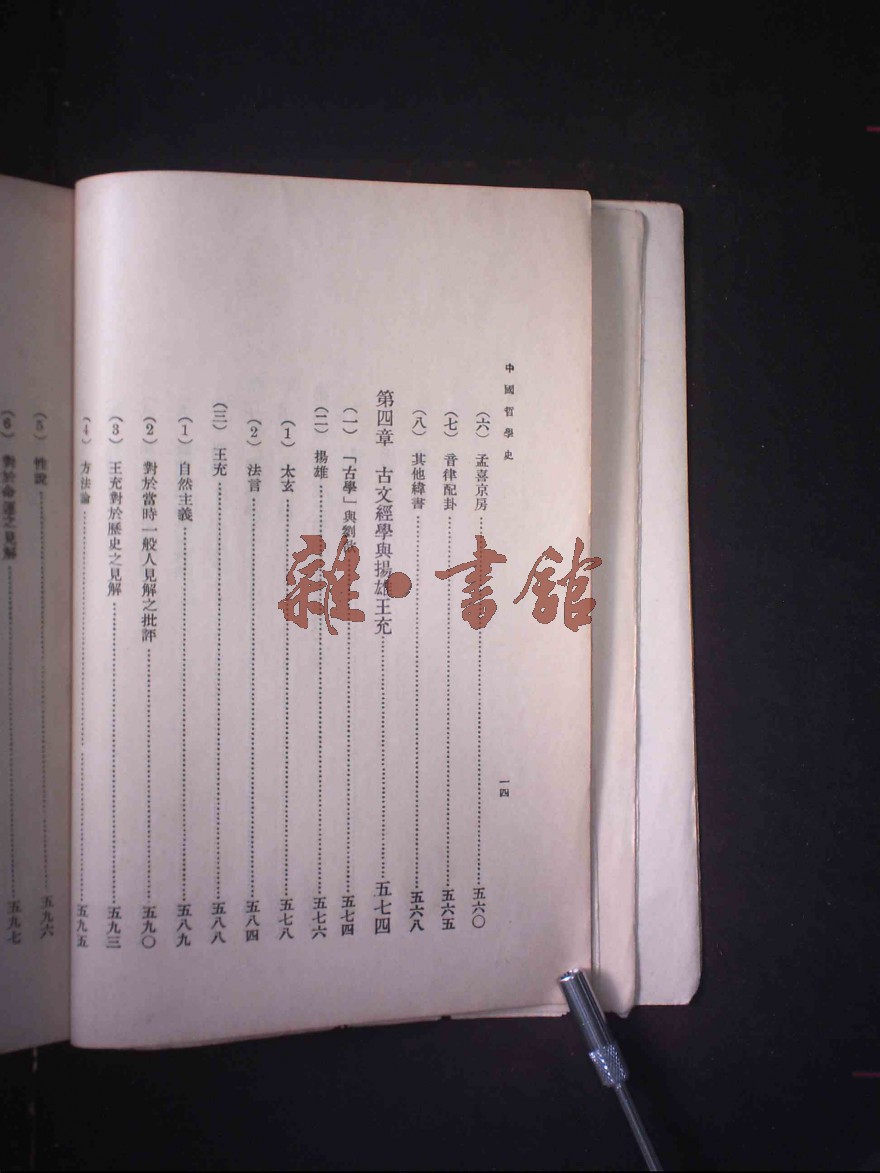 中國哲學史
一四
（六） 孟喜京房……五六〇
（七） 音律配卦……五六五
（八） 其他緯書……五六八
第四章 古文經學與揚雄王充……五七四
（一） 「古學」與劉……五七四
（二） 揚雄……五七六
（1） 太玄……五七八
（2） 法言……五八四
（三） 王充……五八八
（1） 自然主義……五八九
（2） 對於當時一般人見解之批評……五九〇
（3） 王充對於歷史之見解……五九三
（4） 方法論……五九五
（5） 性說……五九六
（6） 對於命運之見解……五九七
雜·書館